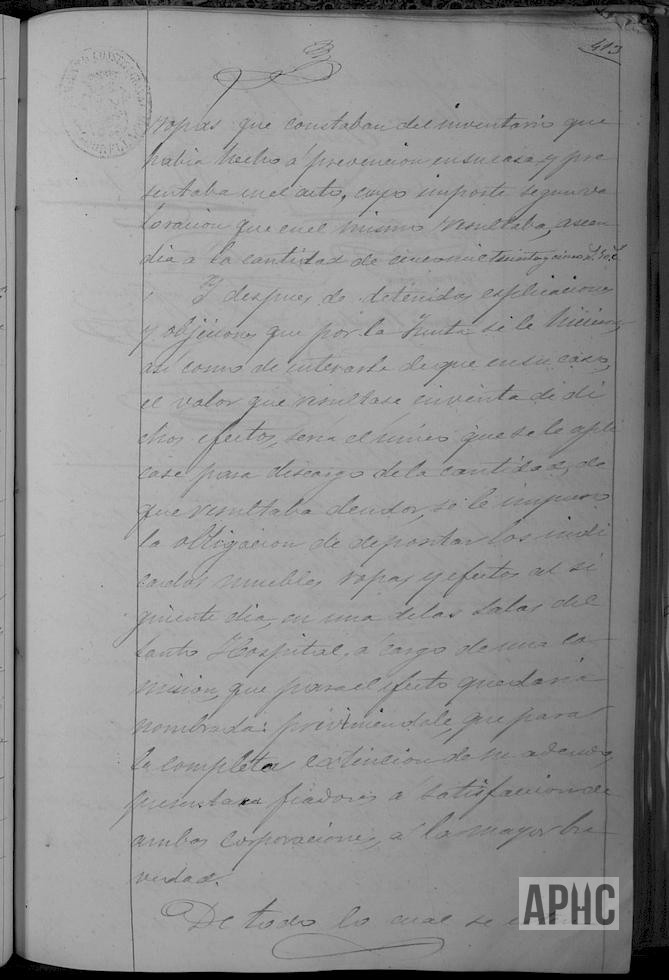 413
ropas que constaban del inventario que
habia hecho á prevencion en su casa y pre
sentaba en el acto, cuyo importe segun va
loracion que en el mismo resultaba, ascen
dia a la cantidad de cinco mil
Y despues de detenidas esplicaciones
y objeciones que por la Junta se le hicieron,
asi como de enterarle de que en su caso,
el valor que resultase en venta de di
chos efectos, seria el único que se le apli
case para descargo de la cantidad de
que resultaba deudor, se le impuso
la obligacion de depositar los indi
cados muebles ropas y efectos al si
guiente dia, en una de las Salas del
Santo Hospital, á cargo de una co
mision, que para el efecto quedaria
nombrada: previniendole, que para
la completa extincion de su adeudo,
presentara fiadores á satisfaccion de
ambas corporaciones, á la mayor bre
vedad.
De todo lo cual se
APHC